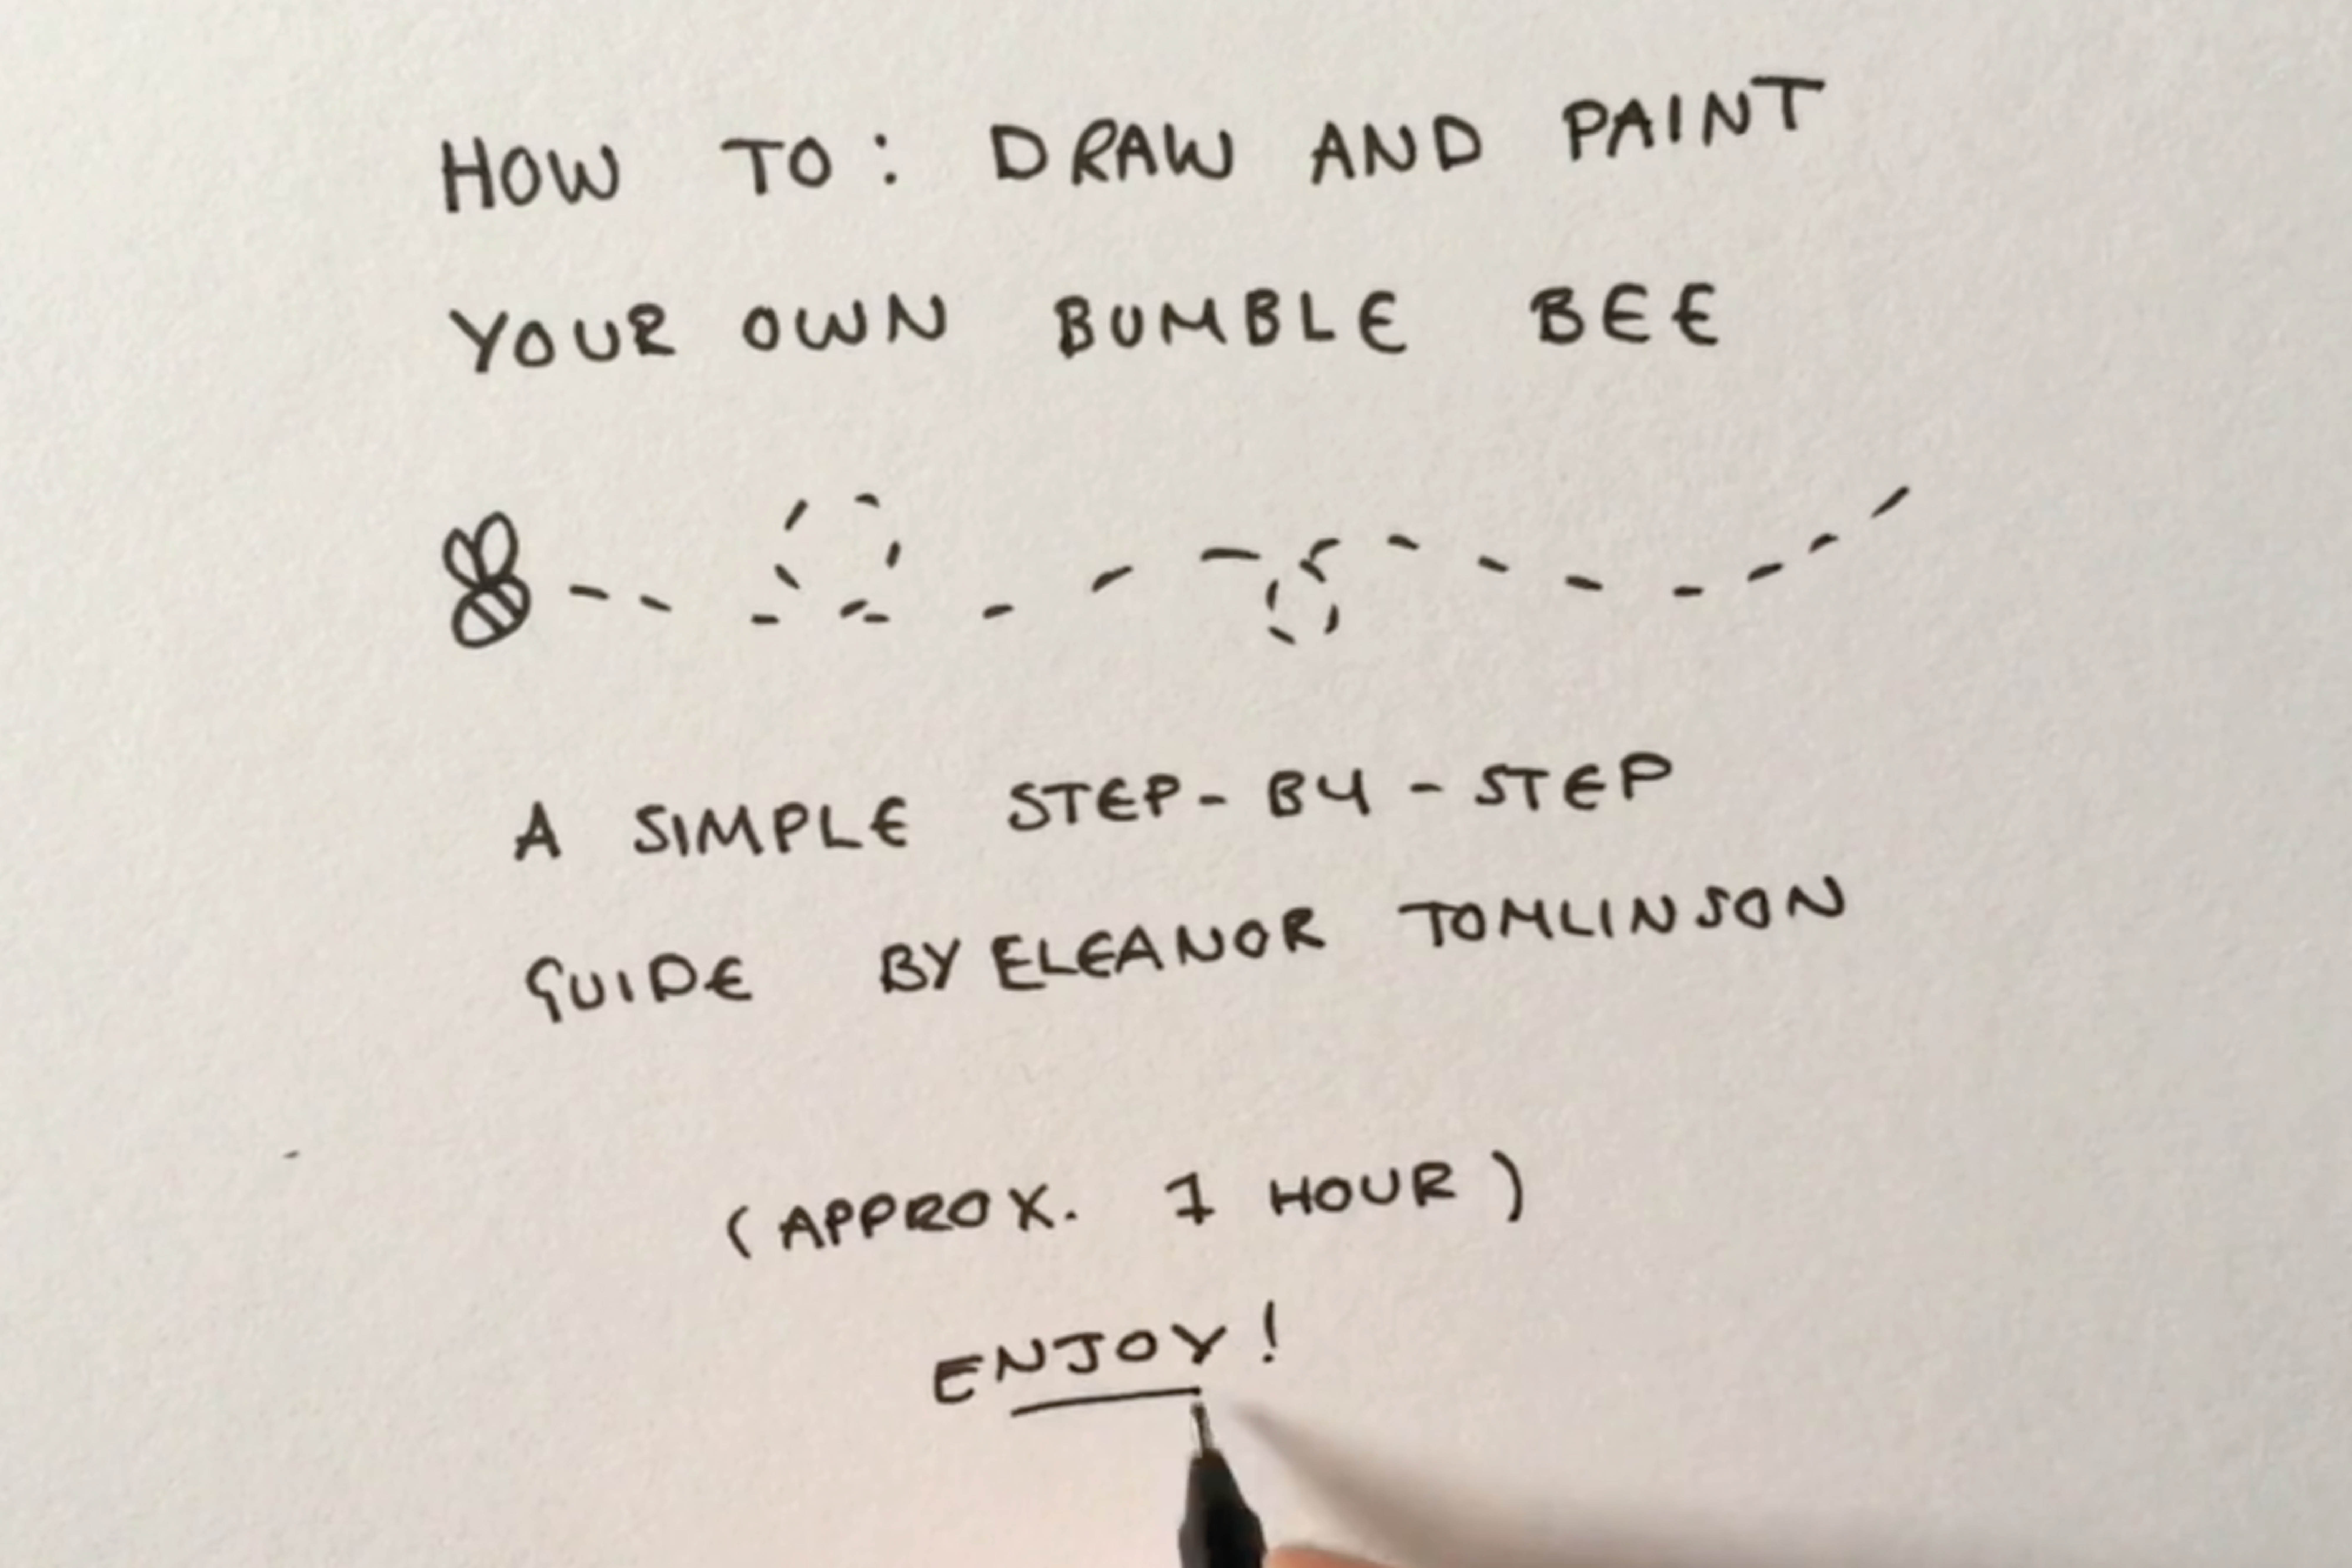 HOW TO: DRAW AND PAINT
YOUR OWN BUMBLE BEE
A SIMPLE STEP-BY-STEP
GUIDE BY ELEANOR TOMLINSON
(APPROX. 1 HOUR)
ENJOY!